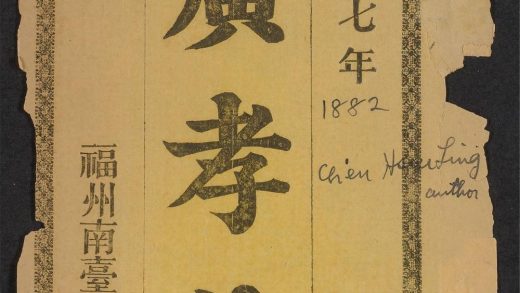 七年
1882
Chien Ling
author
廣孝
福州南臺